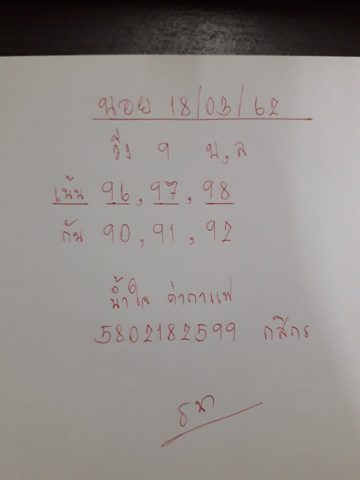 นอย 18/03/62
วิ่ง 9 บ,ล
เน้น 96, 97, 98
กัน 90, 91, 92
น้ำใจ ค่ากาแฟ
5802182599 กสิกร